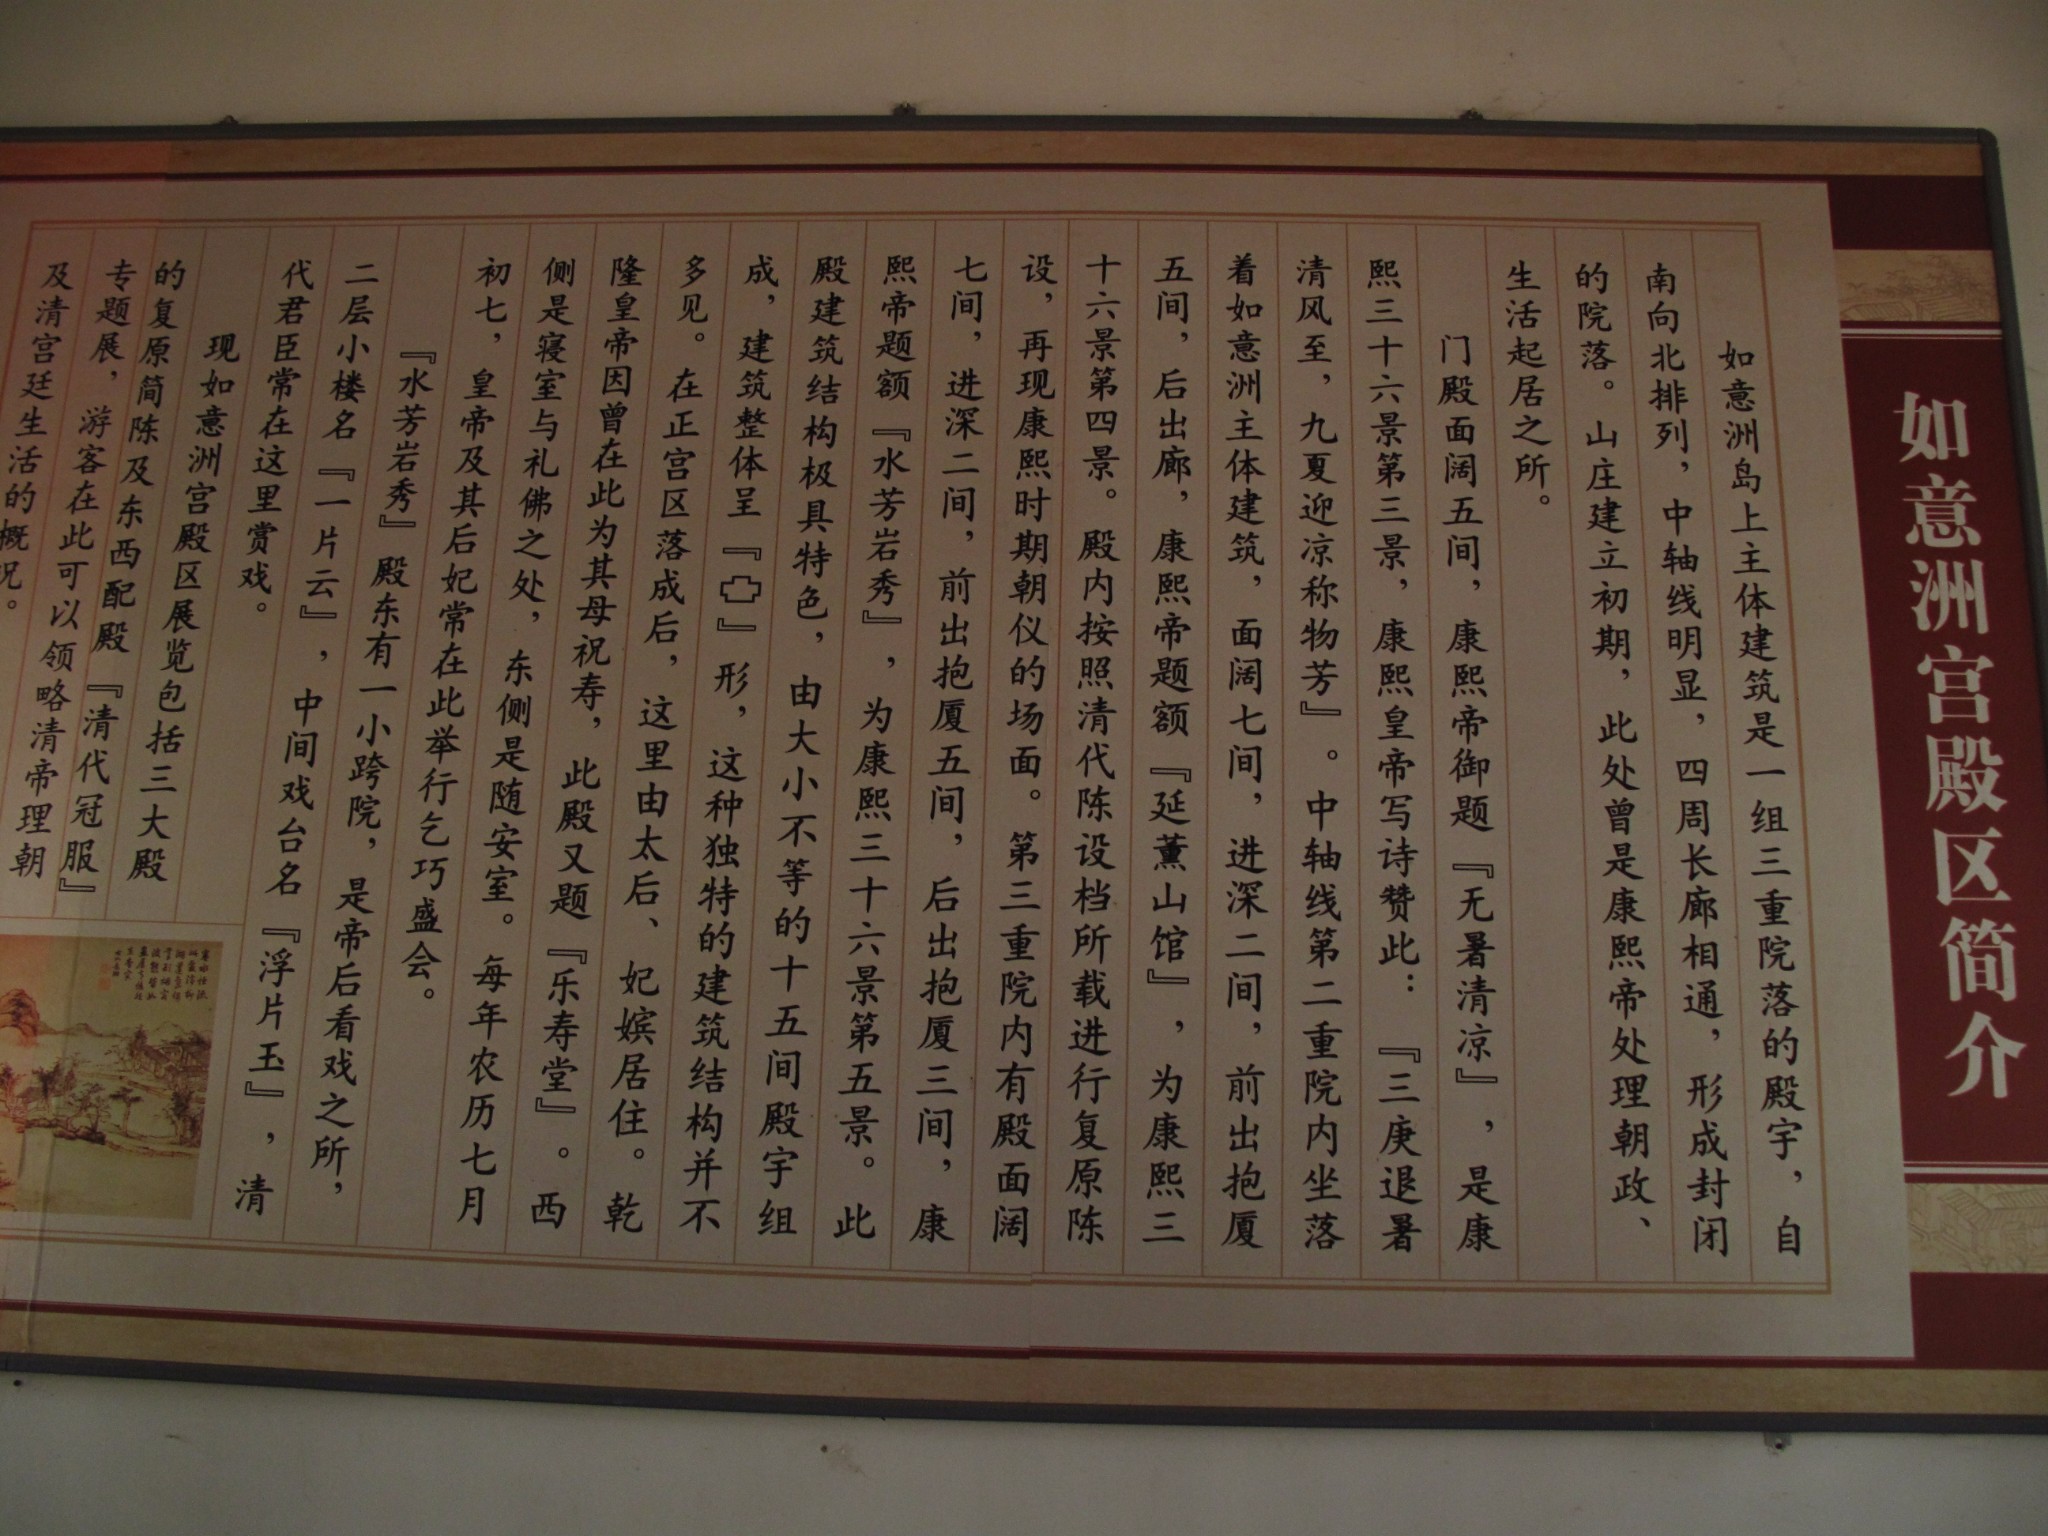 如意洲宫殿区简介
如意洲岛上主体建筑是一组三重院落的殿宇，自
南向北排列，中轴线明显，四周长廊相通，形成封闭
的院落。山庄建立初期，此处曾是康熙帝处理朝政、
生活起居之所。
门殿面阔五间，康熙帝御题『无暑清凉』，是康
熙三十六景第三景，康熙皇帝写诗赞此：『三庚退暑
清风至，九夏迎凉称物芳』。中轴线第二重院内坐落
着如意洲主体建筑，面阔七间，进深二间，前出抱厦
五间，后出廊，康熙帝题额『延薰山馆』，为康熙三
十六景第四景。殿内按照清代陈设档所载进行复原陈
设，再现康熙时期朝仪的场面。第三重院内有殿面阔
七间，进深二间，前出抱厦五间，后出抱厦三间，康
熙帝题额『水芳岩秀』，为康熙三十六景第五景。此
殿建筑结构极具特色，由大小不等的十五间殿宇组
成，建筑整体呈『』形，这种独特的建筑结构并不
多见。在正宫区落成后，这里由太后、妃嫔居住。乾
隆皇帝因曾在此为其母祝寿，此殿又题『乐寿堂』。西
侧是寝室与礼佛之处，东侧是随安室。每年农历七月
初七，皇帝及其后妃常在此举行乞巧盛会。
『水芳岩秀』殿东有一小跨院，是帝后看戏之所，
二层小楼名『一片云』，中间戏台名『浮片玉』，清
代君臣常在这里赏戏。
现如意洲宫殿区展览包括三大殿
的复原简陈及东西配殿『清代冠服』
专题展，游客在此可以领略清帝理朝
及清宫廷生活的概况。